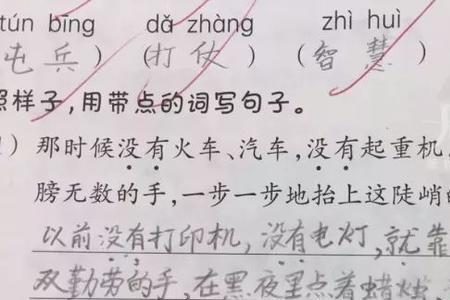 tún bīng dǎ zhàng zhì huì
屯兵) (打仗) (智慧)
照样子,用带点的词写句子。
) 那时候没有火车、汽车,没有起重机,
膀无数的手,一步一步地抬上这陡峭的
以前没有打印机,没有电灯,就靠
双勤劳的手,在黑夜里点着蜡烛,